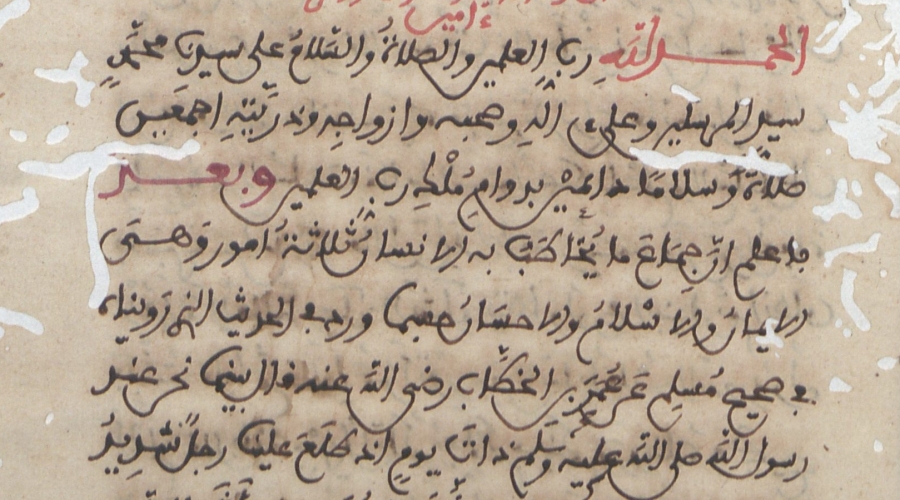 ءامين
الحمد لله رب العلمين والصلاة والسلام على سيدنا محمد
سيد المرسلين وعلى ءاله وصحبه وازواجه وذريته اجمعين
صلاة وسلاما دائمين بدوام ملك رب العلمين وبعد
فاعلم ان جماع ما يخاطب به الانسان ثلاثة امور وهي
الايمان والاسلام والاحسان حسبما ورد في الحديث الذي رويناه
في صحيح مسلم عن عمر بن الخطاب رضي الله عنه قال بينما نحن عند
رسول الله صلى الله عليه وسلم ذات يوم اذ طلع علينا رجل شديد